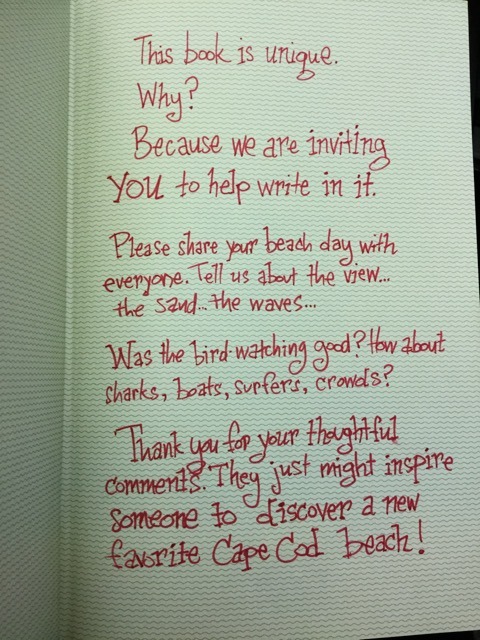 This book is unique.
Why?
Because we are inviting
YOU to help write in it.
Please share your beach day with
everyone. Tell us about the view...
the sand... the waves...
Was the bird-watching good? How about
sharks, boats, surfers, crowds?
Thank you for your thoughtful
comments. They just might inspire
someone to discover a new
favorite Cape Cod beach!